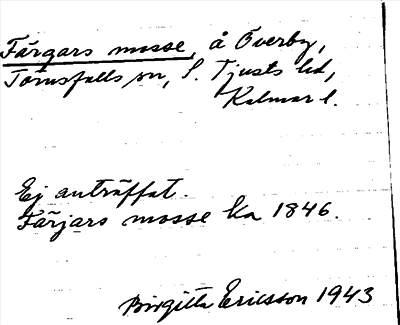 Färgars mosse, å Överby,
Törnsfalls sn, S. Tjusts hd,
Kalmar l.
Ej anträffat.
Färjars mosse ka 1846.
Birgitta Ericsson 1943